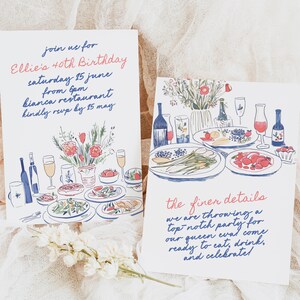 join us for
Ellie's 40th Birthday
saturday 15 june
from 6pm
bianca restaurant
kindly rsvp by 15 may
the finer details
we are throwing a
top-notch party for
our queen eva! come
ready to eat, drink,
and celebrate!